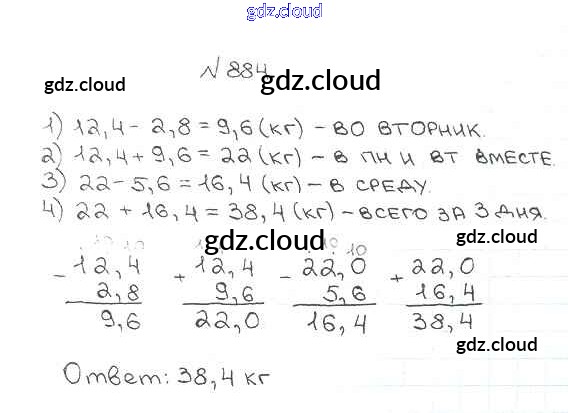 gdz.cloud
№ 884
gdz.cloud gdz.cloud
1) 12,4 - 2,8 = 9,6 (кг) - ВО ВТОРНИК.
2) 12,4 + 9,6 = 22 (кг) - В ПН И ВТ ВМЕСТЕ.
3) 22 - 5,6 = 16,4 (кг) - В СРЕДУ.
4) 22 + 16,4 = 38,4 (кг) - ВСЕГО ЗА 3 ДНЯ.
gdz.cloud gdz.cloud
10 10
- 12,4 + 12,4 - 22,0 + 22,0
2,8 9,6 5,6 16,4
9,6 22,0 16,4 38,4
gdz.cloud gdz.cloud
Ответ: 38,4 кг